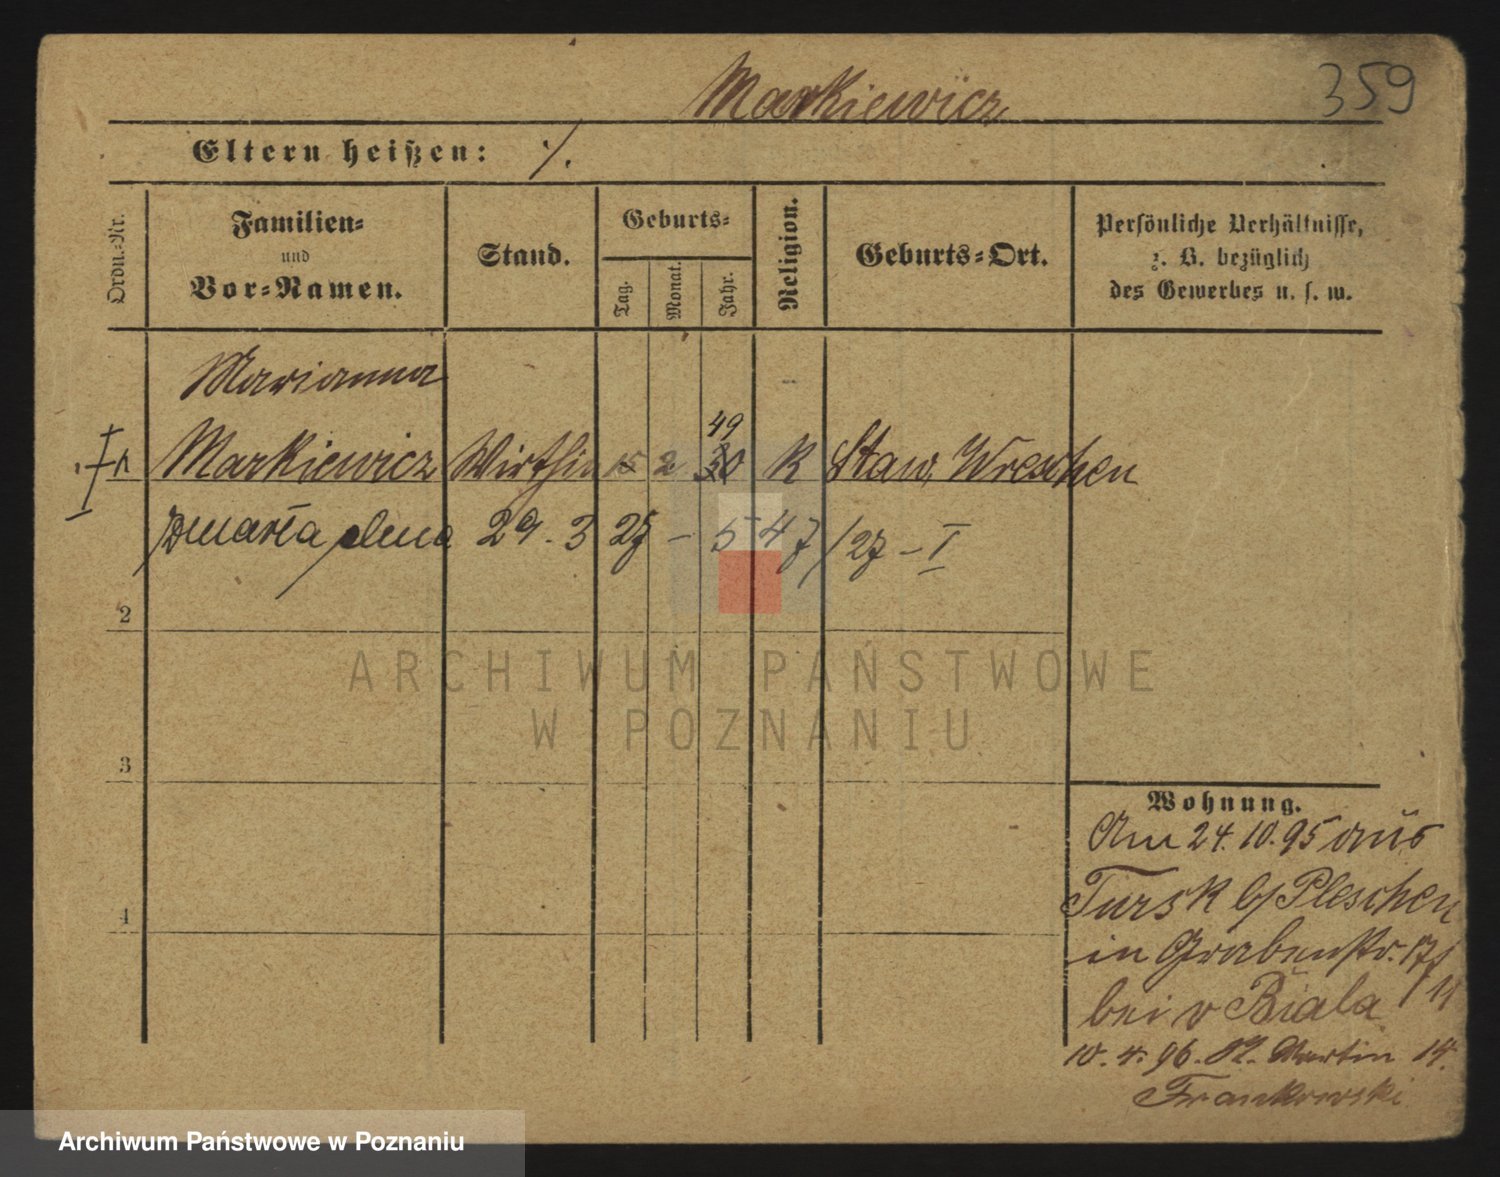 Markiewicz
359
Eltern heißen: ./.
Ordn.-Nr.
Familien-
und
Vor-Namen.
Stand.
Geburts-
Tag.
Monat.
Jahr.
Religion.
Geburts-Ort.
Persönliche Verhältnisse,
z. B. bezüglich
des Gewerbes u. s. w.
Marianna
49
Markiewicz Wirthin 15 2 30 K Staw, Wreschen
zmarła dnia 29. 3 27 – 547/27 – I
2
3
4
ARCHIWUM PAŃSTWOWE
W POZNANIU
Wohnung.
Am 24. 10. 95 aus
Tursk b/Pleschen
in Grabenstr.
bei v Biala
10. 4. 96. St. Martin 14.
Frankowski
Archiwum Państwowe w Poznaniu